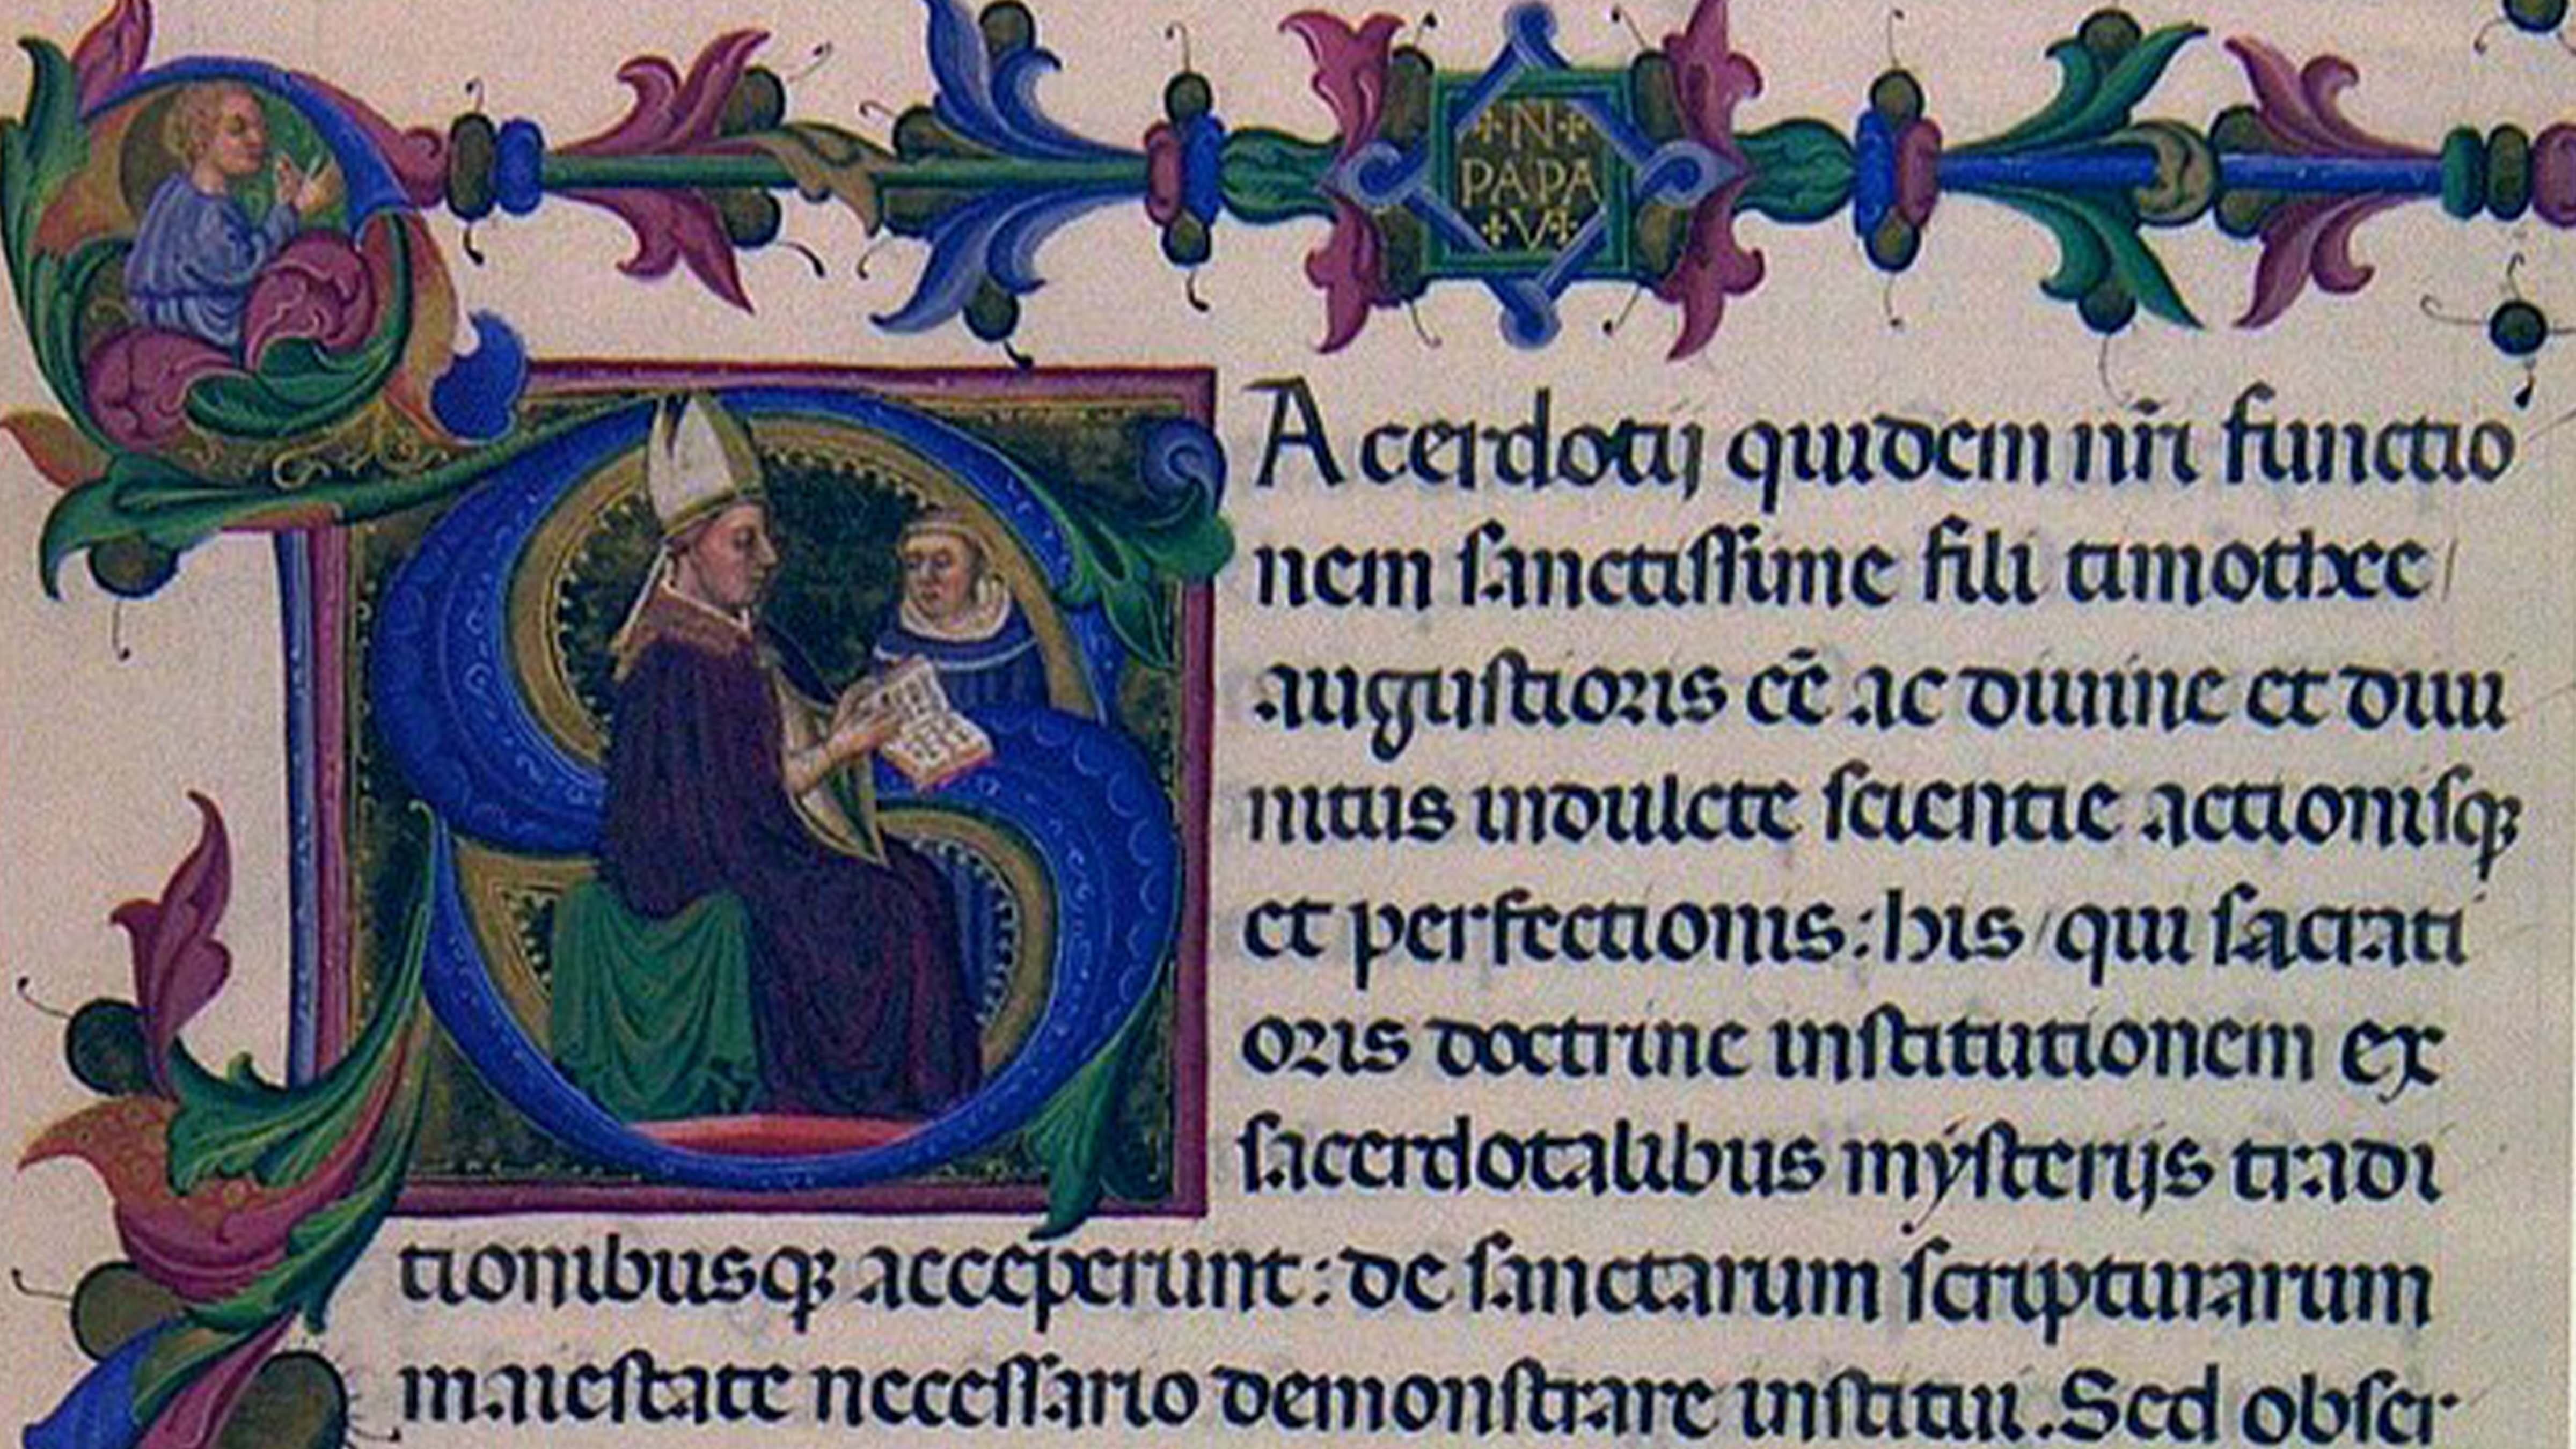 N
PAPA
V
SAcerdotij quidem nr̄i functio
nem sanctissime fili timothee/
augustioris eē̄ ac diuine et diui
nitus indulcte scientie actionisq;
et perfectionis: his/qui sacrati
oris doctrine institutionem ex
sacerdotalibus mẏsterijs tradi
tionibusq; acceperunt: de sanctarum scripturarum
maiestate necessario demonstrare institui. Sed obser